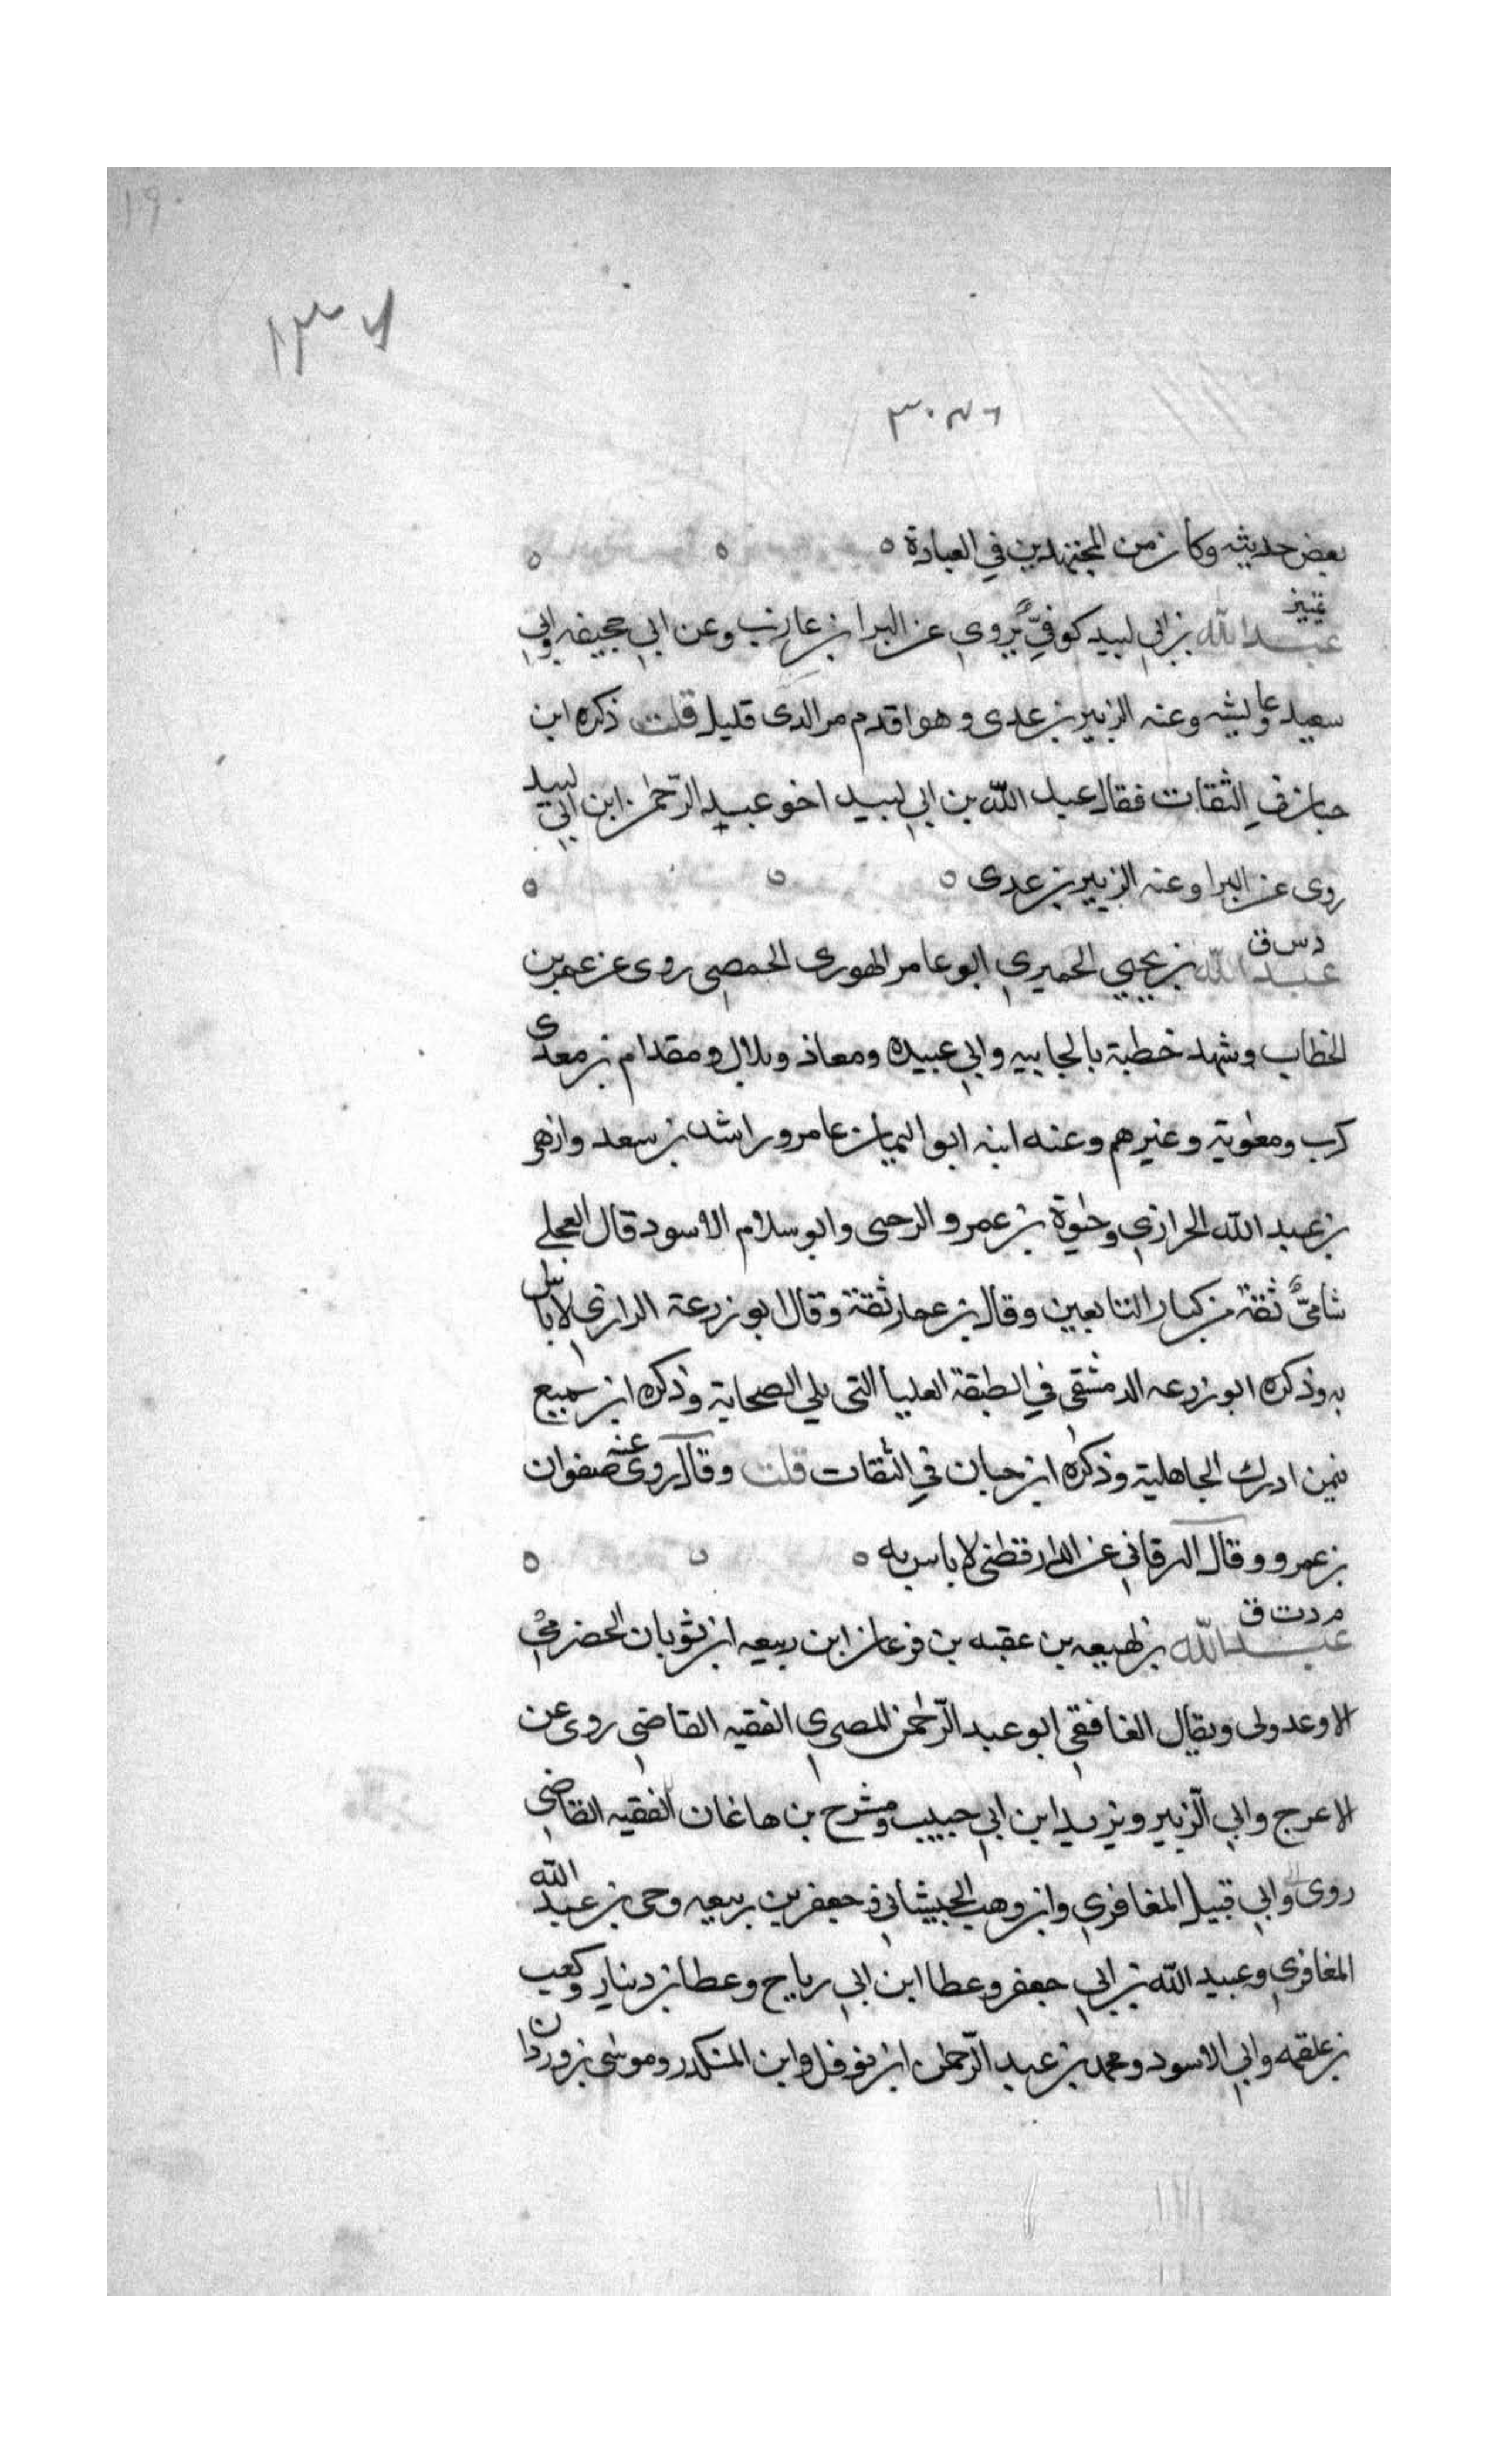 ١٩
١٣٧
بعض حديثه وكان من المجتهدين في العبادة ه
تمييز
عبد الله بن ابي لبيد كوفيٌّ يروي عن البرا بن عازب وعن ابي جحيفه وابي
سعيد وعايشه وعنه الزبير بن عدى وهو اقدم من الدى قليل قلت ذكره ابن
حبان في الثقات فقال عبد الله بن ابي لبيد اخو عبد الرحمن ابن ابي لبيد
روى عن البرا وعنه الزبير بن عدى ه
د س ق
عبد الله بن يحيي الحميري ابو عامر الهوزى الحمصي روى عن عمر بن
الخطاب وشهد خطبة بالجابيه وابي عبيده ومعاذ وبلال ومقدام بن معدى
كرب ومعوية وغيرهم وعنه ابنه ابو اليمان عامر وراشد بن سعد وازهر
بن عبد الله الحرازي وحيوة بن عمرو الرحبى وابو سلام الاسود قال العجلي
شاميٌّ ثقة من كبار التابعين وقال بن عمار ثقة وقال ابو زرعة الرازي لا باس
به وذكره ابو زرعه الدمشقي في الطبقة العليا التي يلي الصحابة وذكره ابن سميع
فيمن ادرك الجاهلية وذكره ابن حبان في الثقات قلت وقال روى عنه صفوان
بن عمرو وقال البرقاني عن الدارقطنى لا باس به ه
م د ت ق
عبد الله بن لهيعه بن عقبه بن فرعان ابن ربيعه ابن ثوبان الحضرمي
الاوعدولى ويقال الغافقي ابو عبد الرحمن المصري الفقيه القاضي روى عن
الاعرج وابي الزبير ويزيد ابن ابي حبيب ومشرح بن هاغان الفقيه القاضي
روى وابي قبيل المغافري وابن وهب الجيشاني وجعفر بن ربيعه وحى بن عبد الله
المغافري وعبيد الله بن ابي جعفر وعطا ابن ابي رياح وعطا بن دينار وكعب
بن علقمه وابي الاسود ومحمد بن عبد الرحمن ابن نوفل وابن المنكدر وموسى بن وردان